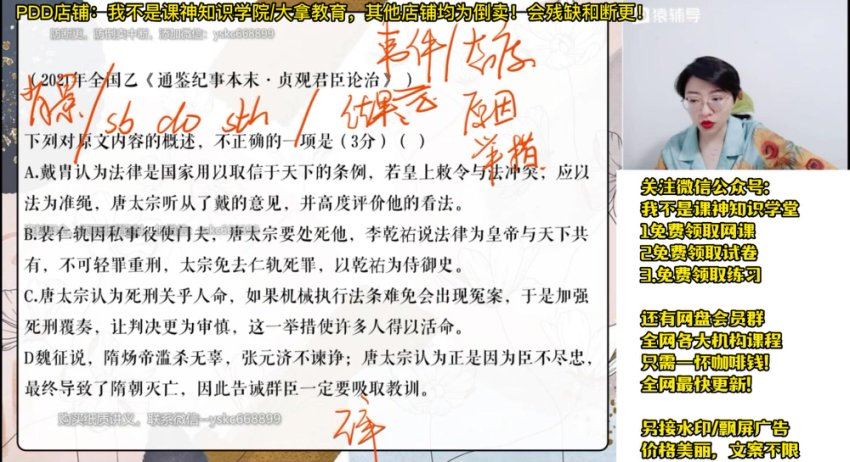 PDD店铺：我不是课神知识学院/大拿教育，其他店铺均为倒卖！会残缺和断更！
防断更、防倒卖中断，添加微信：yskc668899
猿辅导
（2021年全国乙《通鉴纪事本末·贞观君臣论治》）
事件/
背景/sb do sth/结果
原因
举措
下列对原文内容的概述，不正确的一项是（3分）（ ）
A.戴胄认为法律是国家用以取信于天下的条例，若皇上敕令与法冲突，应以
法为准绳，唐太宗听从了戴的意见，并高度评价他的看法。
B.裴仁轨因私事役使门夫，唐太宗要处死他，李乾祐说法律为皇帝与天下共
有，不可轻罪重刑，太宗免去仁轨死罪，以乾祐为侍御史。
C.唐太宗认为死刑关乎人命，如果机械执行法条难免会出现冤案，于是加强
死刑覆奏，让判决更为审慎，这一举措使许多人得以活命。
D魏征说，隋炀帝滥杀无辜，张元济不谏诤；唐太宗认为正是因为臣不尽忠，
最终导致了隋朝灭亡，因此告诫群臣一定要吸取教训。
购买纸质讲义，联系微信--yskc668899
关注微信公众号：
我不是课神知识学堂
1免费领取网课
2免费领取试卷
3.免费领取练习
还有网盘会员群
全网各大机构课程
只需一杯咖啡钱！
全网最快更新！
另接水印/飘屏广告
价格美丽，文案不限